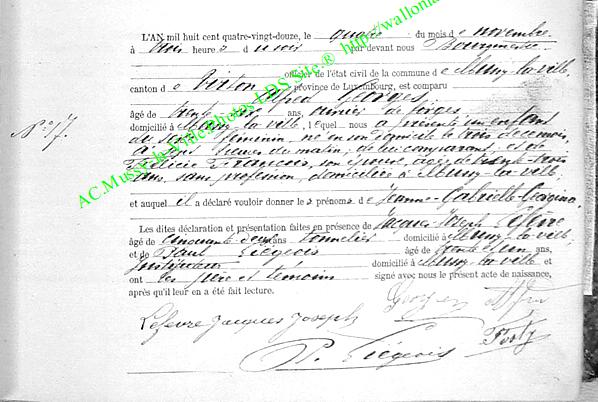 L'AN mil huit cent quatre-vingt-douze, le quatre du mois de novembre
à trois heures du soir par devant nous Bourgmestre
officier de l'état civil de la commune de Mussy-la-ville,
canton de Virton province de Luxembourg, est comparu
Alfred Georges
âgé de trente ans, ouvrier de forges
domicilié à Mussy-la-ville, lequel nous a présenté un enfant
du sexe féminin, né en son domicile le trois de ce mois,
à onze heures du matin, de lui comparant, et de
Félicie François, son épouse, âgée de trente-trois
ans, sans profession, domiciliée à Mussy-la-ville
et auquel il a déclaré vouloir donner les prénoms de Jeanne-Gabrielle-Georgina
Les dites déclaration et présentation faites en présence de Jacques Joseph Lefèvre
âgé de cinquante deux ans tonnelier domicilié à Mussy-la-ville
et de Paul Liégeois âgé de trente ans,
domicilié à Mussy-la-ville
ont les père et témoins signé avec nous le présent acte de naissance,
après qu'il leur en a été fait lecture.
Georges Alfred
Lefevre Jacques Joseph
P. Liégeois
N° 17.
AC.Mussy-la-Ville photos LDS Site.® http://wallonia